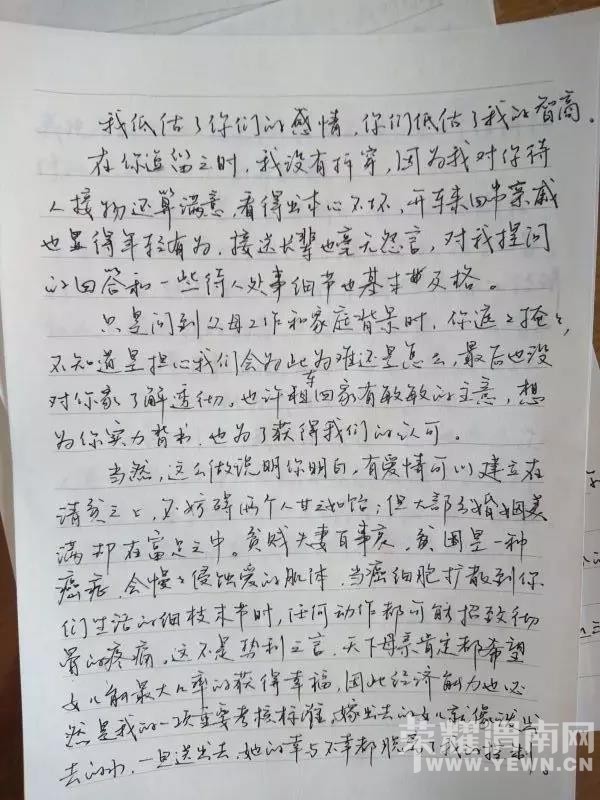 我低估了你们的感情，你们低估了我的智商。
在你逗留之时，我没有拆穿，因为我对你待
人接物还算满意，看得出本心不坏，开车来回串亲戚
也显得年轻有为，接送长辈也毫无怨言，对我提问
的回答和一些待人处事细节也基本及格。
只是问到父母工作和家庭背景时，你遮遮掩掩，
不知道是担心我们会为此为难还是怎么，最后也没
对你家了解透彻。也许租车回家有敏敏的主意，想
为你实力背书，也为了获得我们的认可。
当然，这么做说明你明白，有爱情可以建立在
清贫之上，不妨碍两个人甘之如饴；但大部分婚姻美
满却在富足之中。贫贱夫妻百事哀，贫困是一种
癌症，会慢慢侵蚀爱的肌体，当癌细胞扩散到你
们生活的细枝末节时，任何动作都可能招致彻
骨的疼痛。这不是势利之言，天下母亲肯定都希望
女儿能最大几率的获得幸福，因此经济能力也必
然是我的一项主要考核标准，嫁出去的女儿就像泼出
去的水，一旦送出去，她的幸与不幸都脱离了我的控制。
荣耀渭南网
WWW.YEWN.CN